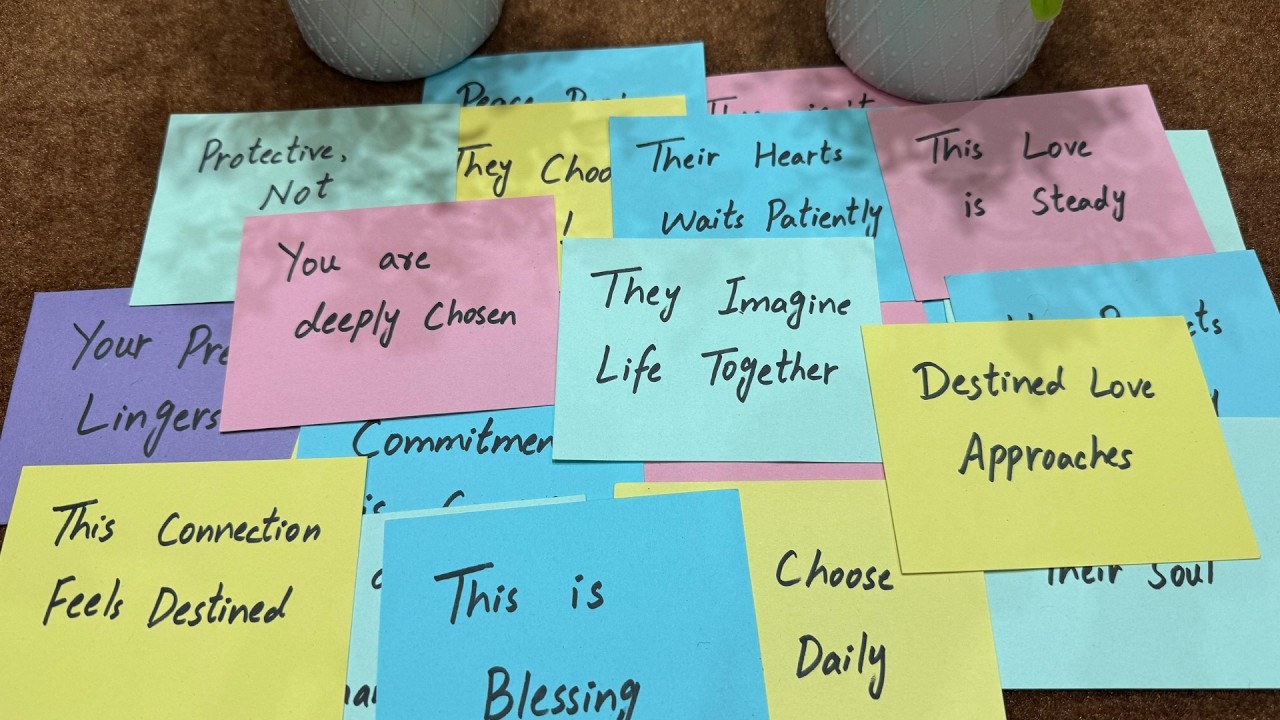 Peace
Protective,
Not
They
!
Their Hearts
Waits Patiently
This Love
is Steady
You are
deeply Chosen
They Imagine
Life Together
Your
Lingers
Destined Love
Approaches
This Connection
Feels Destined
is
This is
Blessing
Choose
Daily
Their Soul